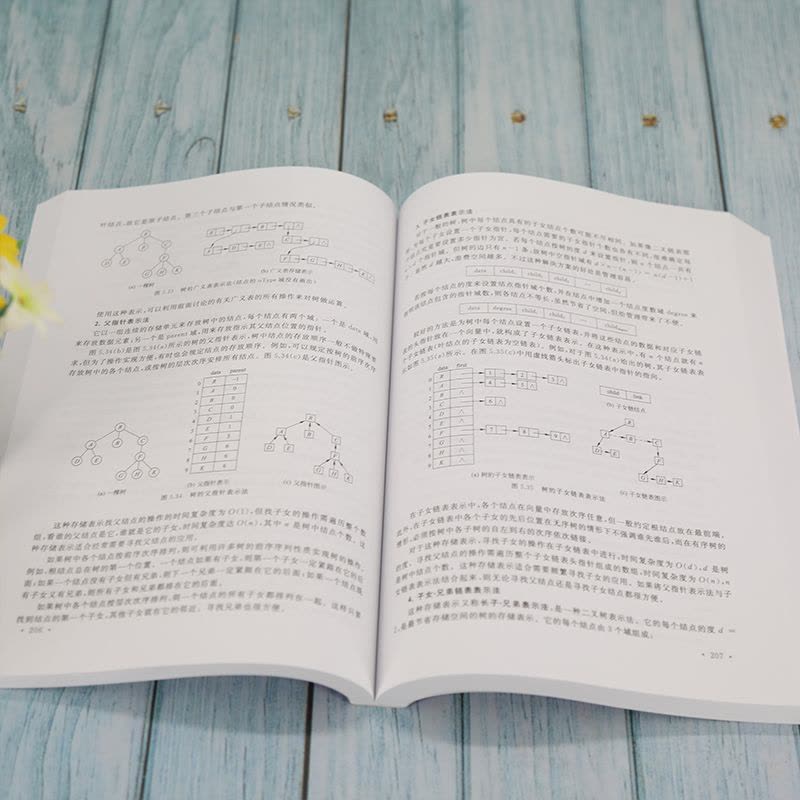 叶结点,故它是原子结点。第三个子结点与第一个子结点情况类似。
(a) 一棵树
(b) 广义表存储表示
图 5.33 树的广义表表示法(结点的 utype 域没有画出)
使用这种表示,可以利用前面讨论的有关广义表的所有操作来对树做运算。
2. 父指针表示法
它以一组连续的存储单元来存放树中的结点,每个结点有两个域:一个是 data 域,用
来存放数据元素,另一个是 parent 域,用来存放指示其父结点位置的指针。
图 5.34(b)是图 5.34(a)所示的树的父指针表示,树中结点的存放顺序一般不做特殊要
求,但为了操作实现方便,有时也会规定结点的存放顺序。例如,可以规定按树的前序次序
存放树中的各个结点,或按树的层次次序安排所有结点。图 5.34(c)是父指针图示。
data parent
0 R -1
1 A 0
2 B 0
3 C 0
4 D 1
5 E 1
6 F 3
7 G 6
8 H 6
9 K 6
(a) 一棵树
(b) 父指针表示
(c) 父指针图示
图 5.34 树的父指针表示法
这种存储表示找父结点的操作的时间复杂度为 O(1),但找子女的操作需遍历整个数
组,看谁的父结点是它,谁就是它的子女,时间复杂度达 O(n),其中 n 是树中结点个数。这
种存储表示适合经常需要寻找父结点的应用。
如果树中各个结点按前序次序排列,则可利用许多树的前序序列性质实现树的操作。
例如,根结点总在树的第一个位置。一个结点如果有子女,则第一个子女一定紧跟在它的后
面;如果一个结点没有子女但有兄弟,则下一个兄弟一定紧跟在它的后面;如果一个结点既
有子女又有兄弟,则所有子女和兄弟都排在它的后面。
如果树中各个结点按层次次序排列,则一个结点的所有子女都排列在一起。这样只要
找到结点的第一个子女,其他子女就在它的邻近。寻找兄弟也很方便。
· 206 ·
3. 子女链表表示法
data child₁ child₂ child₃
若按每个结点的度来设置结点指针域个数,并在结点中增加一个结点度数域 degree 来
指明该结点包含的指针域数,则各结点不等长,虽然节省了空间,但给管理带来了不便。
data degree child₁ child₂
较好的方法是为树中每个结点设置一个子女链表,并将这些结点的数据和对应子女链
表的头指针放在一个向量中,就构成了子女链表表示。在这种表示中,有 n 个结点就有 n
个子女链表(叶结点的子女链表为空链表)。例如,对于图 5.35(a)给出的树,其子女链表表
示如图 5.35(a)所示。在图 5.35(c)中用虚线箭头标出子女链表中指针的指向。
data first
0 R 1 2 3 ∧
1 A 4 5 ∧
2 B ∧
3 C 6 ∧
4 D ∧
5 E ∧
6 F 7 8 9 ∧
7 G ∧
8 H ∧
9 K ∧
child link
(b) 子女链结点
(a) 树的子女链表表示
(c) 子女链表图示
图 5.35 树的子女链表表示法
在子女链表表示中,各个结点在向量中存放次序任意,但一般约定根结点放在最前端。
此外,在子女链表中各个子女的先后位置在无序树的情形下不强调谁先谁后,而在有序树的
情形,必须按树中各子树的自左到右的次序依次链接。
对于这种存储表示,寻找子女的操作在子女链表中进行,时间复杂度为 O(d),d 是树
的度。寻找父结点的操作需遍历整个子女链表头指针组成的数组,时间复杂度为 O(n),n
是树中结点个数。这种存储表示适合需要频繁寻找子女的应用。如果将父指针表示法与子
女链表表示法结合起来,则无论寻找父结点还是寻找子女结点都很方便。
4. 子女-兄弟链表表示法
这种存储表示又称长子-兄弟表示法,是一种二叉树表示法。它的每个结点的度 d =
2,是最节省存储空间的树的存储表示。它的每个结点由 3 个域组成:
· 207 ·